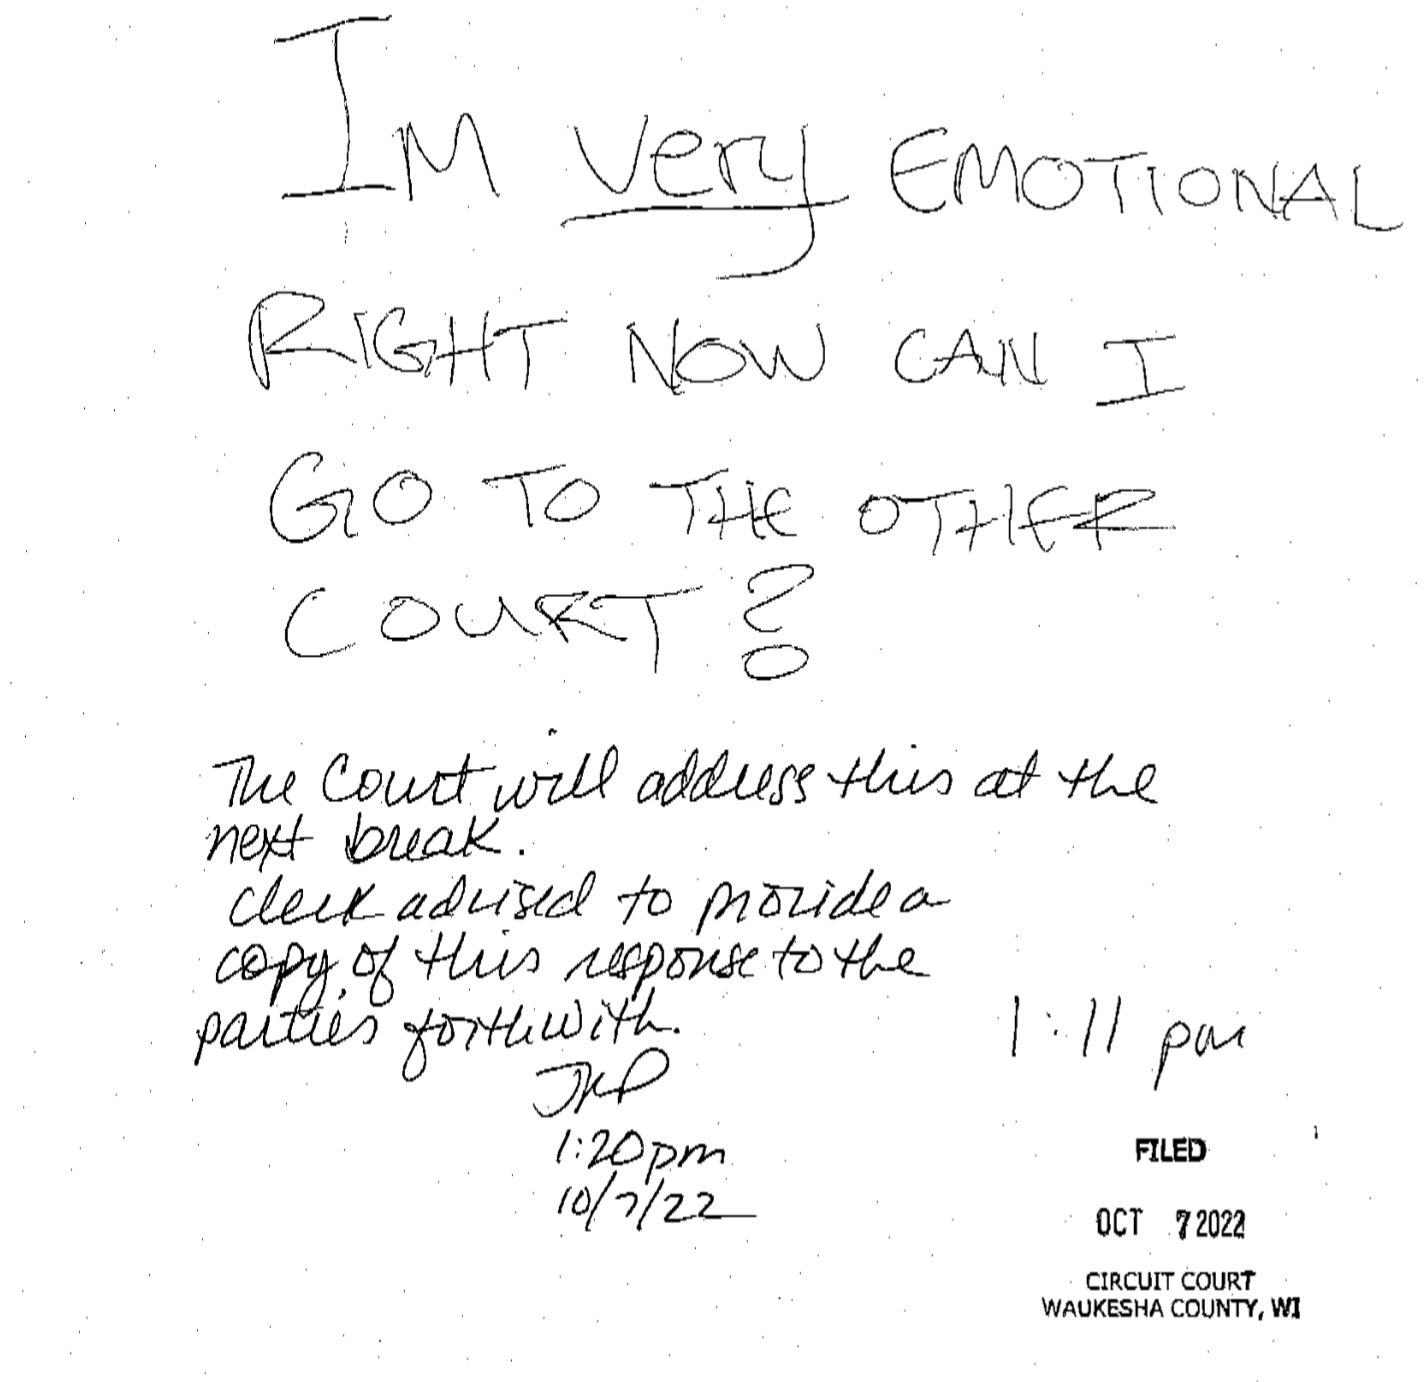 IM very EMOTIONAL
RIGHT NOW CAN I
GO TO THE OTHER
COURT?
The Court will address this at the
next break.
Clerk advised to provide a
copy of this response to the
parties forthwith.
JRD
1:20pm
10/7/22
1:11 pm
FILED
OCT 7 2022
CIRCUIT COURT
WAUKESHA COUNTY, WI